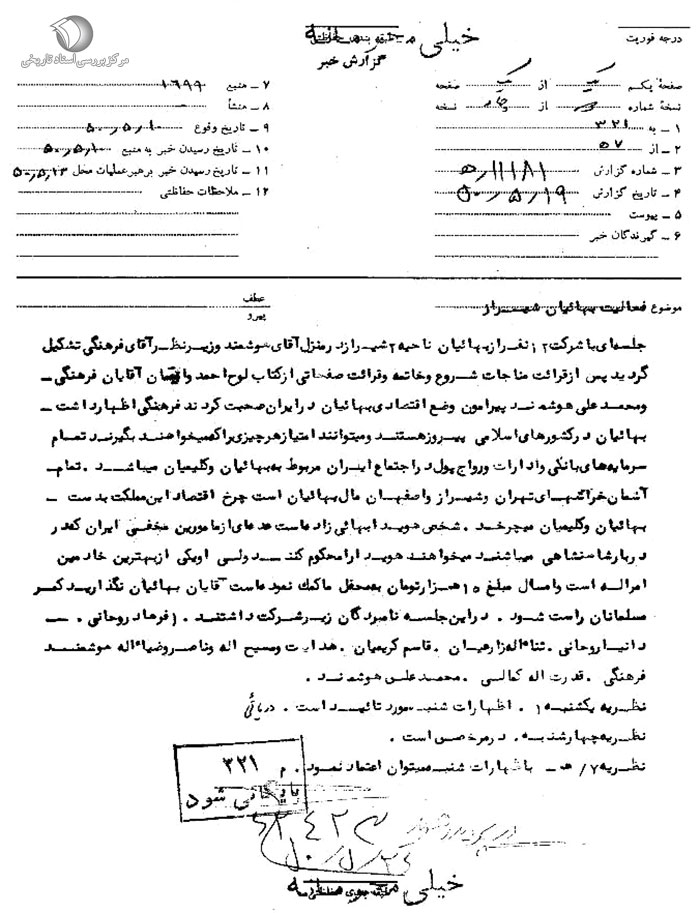 مرکز بررسی اسناد تاریخی
خیلی محرمانه
گزارش خبر
درجه فوریت
صفحه یکم یک از یک صفحه
نسخه شماره از نسخه
۱ ـ به ۳۲۱
۲ ـ از ۵۷
۳ ـ شماره گزارش ۱۱۱۸۱/ه
۴ ـ تاریخ گزارش ۵۰/۵/۱۹
۵ ـ پیوست
۶ ـ گیرندگان خبر
۷ ـ منبع ۱۶۹۹
۸ ـ منشأ
۹ ـ تاریخ وقوع ۵۰/۵/۱۰
۱۰ ـ تاریخ رسیدن خبر به منبع ۵۰/۵/۱۰
۱۱ ـ تاریخ رسیدن خبر برهبر عملیات محل ۵۰/۵/۱۳
۱۲ ـ ملاحظات حفاظتی
موضوع فعالیت بهائیان شیراز
عطف
پیرو
جلسه‌ای با شرکت ۱۲ نفر از بهائیان ناحیه ۲ شیراز در منزل آقای هوشمند و زیر نظر آقای فرهنگی تشکیل
گردید پس از قرائت مناجات شروع و خاتمه و قرائت صفحاتی از کتاب لوح احمد و آقایان فرهنگی ـ
و محمد علی هوشمند پیرامون وضع اقتصادی بهائیان در ایران صحبت کردند فرهنگی اظهار داشت ـ
بهائیان در کشورهای اسلامی پیروز هستند و میتوانند امتیاز هر چیزی را که میخواهند بگیرند تمام
سرمایه‌های بانکی و ادارات و رواج پول در اجتماع ایران مربوط به بهائیان و کلیمیان میباشد . تمام
آسمان خراشهای تهران و شیراز و اصفهان مال بهائیان است چرخ اقتصاد این مملکت بدست ـ
بهائیان و کلیمیان میچرخد . شخص هویدا بهائی زاده است عده‌ای از مامورین مخفی ایران که در
دربار شاهنشاهی میباشند میخواهند هویدا را محکوم کنند ولی او یکی از بهترین خادمین
امراله است و امسال مبلغ ۱۵ هزار تومان به محفل ما کمک نموده است آقایان بهائیان نگذارید کمر
مسلمانان راست شود . در این جلسه نامبردگان زیر شرکت داشتند . ۱ فرهاد روحانی . ـ
دانیا روحانی . ثناءاله زارعیان . قاسم کریمیان . هدایت و مسیح اله و ناصر و ضیاءاله هوشمند
فرهنگی . قدرت اله کمالی . محمد علی هوشمند .
نظریه یکشنبه ۱ . اظهارات شنبه مورد تائید است . دریائی
نظریه چهارشنبه . در مرخصی است .
نظریه ۷/ هـ ـ باظهارات شنبه میتوان اعتماد نمود . م
۳۲۱
بایگانی شود
خیلی محرمانه